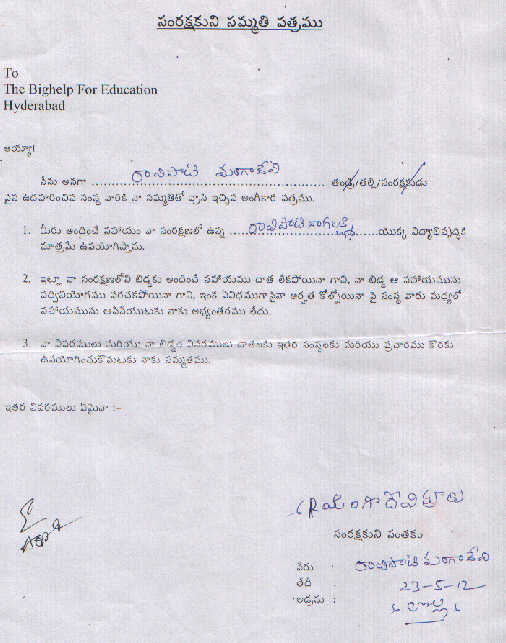 సంరక్షకుని సమ్మతి పత్రము
To
The Bighelp For Education
Hyderabad
అయ్యా!
నేను అనగా ........ తండ్రి/తల్లి/సంరక్షకుడు
పైన ఉదహరించిన సంస్థ వారికి నా సమ్మతితో వ్రాసి ఇచ్చిన అంగీకార పత్రము.
1. మీరు అందించే సహాయం నా సంరక్షణలో ఉన్న ........ యొక్క విద్యాభివృద్ధికి
మాత్రమే ఉపయోగిస్తాను.
2. ఇట్లా నా సంరక్షణలోని బిడ్డకు అందించే సహాయము దాత లేకపోయినా గాని, నా బిడ్డ ఆ సహాయమును
సద్వినియోగము పరచకపోయినా గాని, ఇంక ఏవిధముగానైనా అర్హత కోల్పోయినా పై సంస్థ వారు మధ్యలో
సహాయమును ఆపివేయుటకు నాకు అభ్యంతరము లేదు.
3. నా వివరములు మరియు నా బిడ్డల వివరములు దాతలకు ఇతర సంస్థలకు మరియు ప్రచారము కొరకు
ఉపయోగించుకొనుటకు నాకు సమ్మతము.
ఇతర వివరములు ఏమైనా :-
సంరక్షకుని సంతకం
పేరు :
తేదీ : 23-5-12
అడ్రసు :